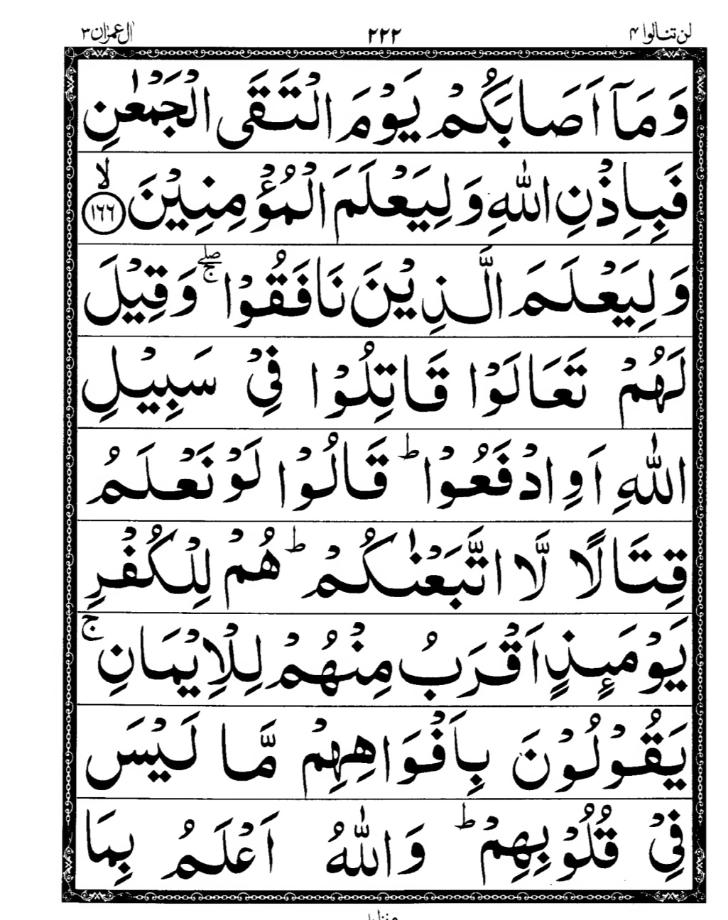 لن تنالوا ۴ ۲۲۲ اٰل عمرٰن ۳
وَمَاۤ اَصَابَكُمْ يَوْمَ الْتَقَى الْجَمْعٰنِ
فَبِاِذْنِ اللّٰهِ وَلِيَعْلَمَ الْمُؤْمِنِيْنَ ۙ﴿۱۶۶﴾
وَلِيَعْلَمَ الَّذِيْنَ نَافَقُوْا ۖۚ وَقِيْلَ
لَهُمْ تَعَالَوْا قَاتِلُوْا فِيْ سَبِيْلِ
اللّٰهِ اَوِ ادْفَعُوْا ؕ قَالُوْا لَوْ نَعْلَمُ
قِتَالًا لَّا اتَّبَعْنٰكُمْ ؕ هُمْ لِلْكُفْرِ
يَوْمَئِذٍ اَقْرَبُ مِنْهُمْ لِلْاِيْمَانِ ۚ
يَقُوْلُوْنَ بِاَفْوَاهِهِمْ مَّا لَيْسَ
فِيْ قُلُوْبِهِمْ ؕ وَاللّٰهُ اَعْلَمُ بِمَا
منزل ۱